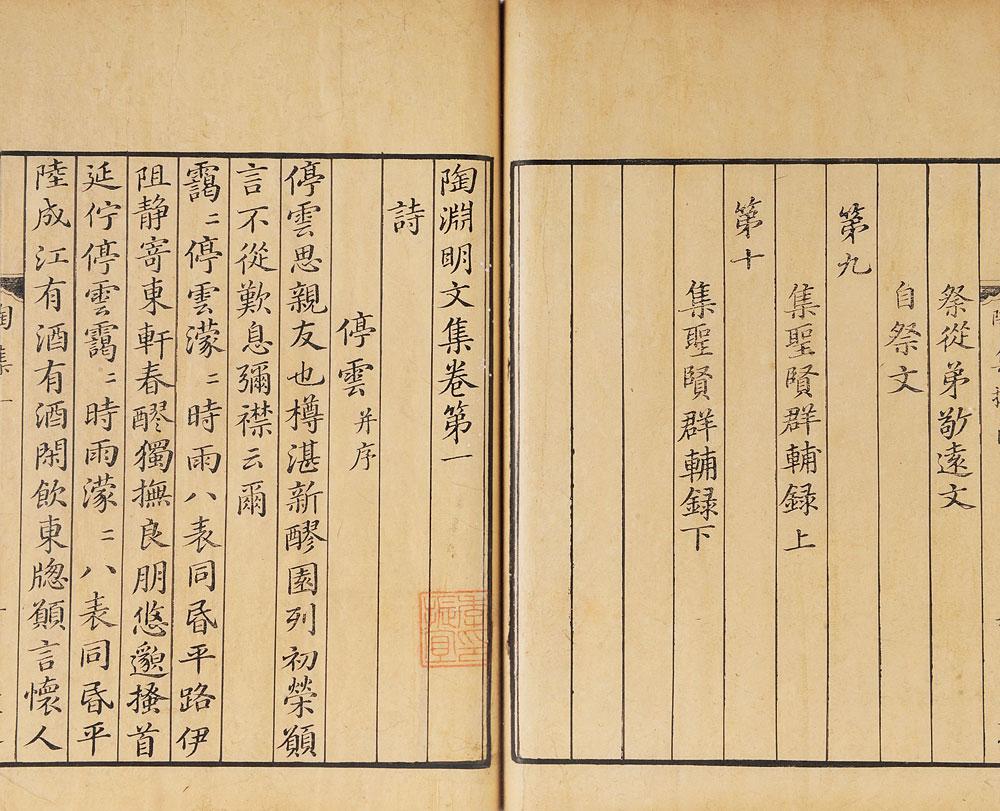 祭從弟敬遠文
自祭文
第九
集聖賢群輔録上
第十
集聖賢群輔録下
陶淵明文集卷第一
詩
停雲 并序
停雲思親友也樽湛新醪園列初榮願
言不從歎息彌襟云爾
靄〻停雲濛〻時雨八表同昏平路伊
阻静寄東軒春醪獨撫良朋悠邈搔首
延佇停雲靄〻時雨濛〻八表同昏平
陸成江有酒有酒閑飲東牕願言懷人
陶集一